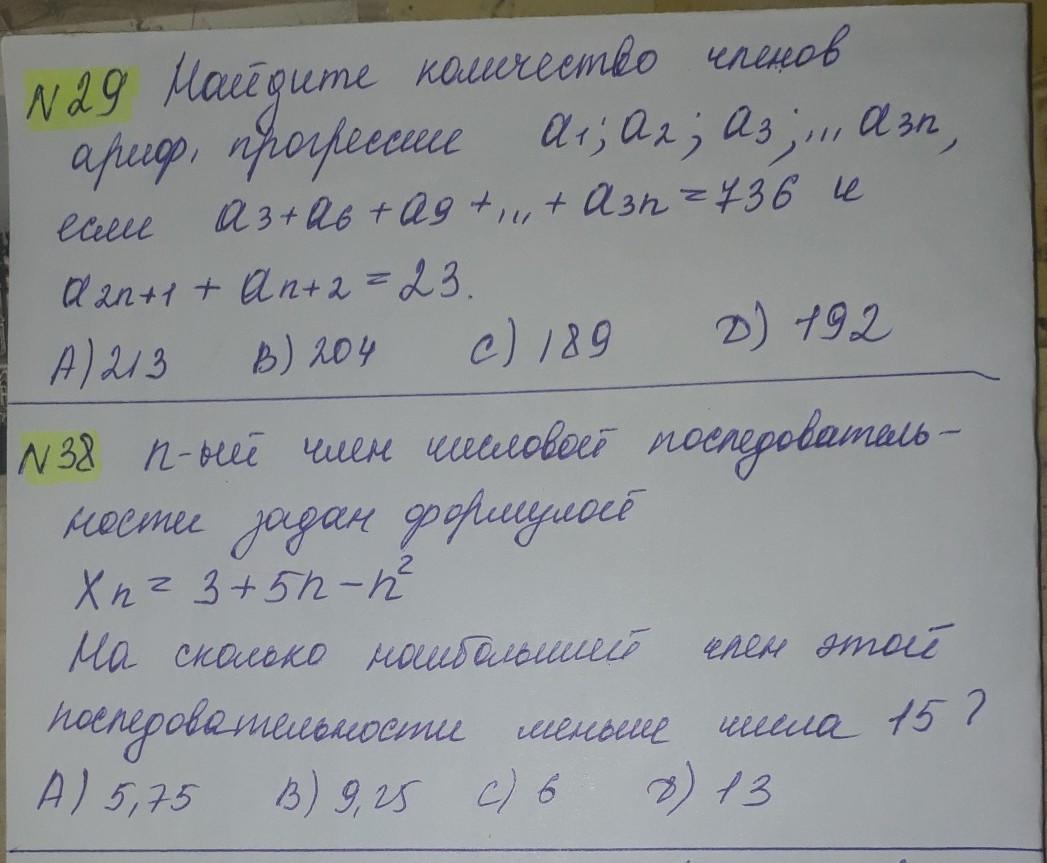 N29 Найдите количество членов
ариф. прогрессии a1; a2; a3; ... a3n,
если a3 + a6 + a9 + ... + a3n = 736 и
a2n+1 + an+2 = 23.
A) 213 B) 204 C) 189 D) 192
N38 n-ый член числовой последователь-
ности задан формулой
Xn = 3 + 5n - n²
На сколько наибольший член этой
последовательности меньше числа 15?
A) 5,75 B) 9,25 C) 6 D) 13